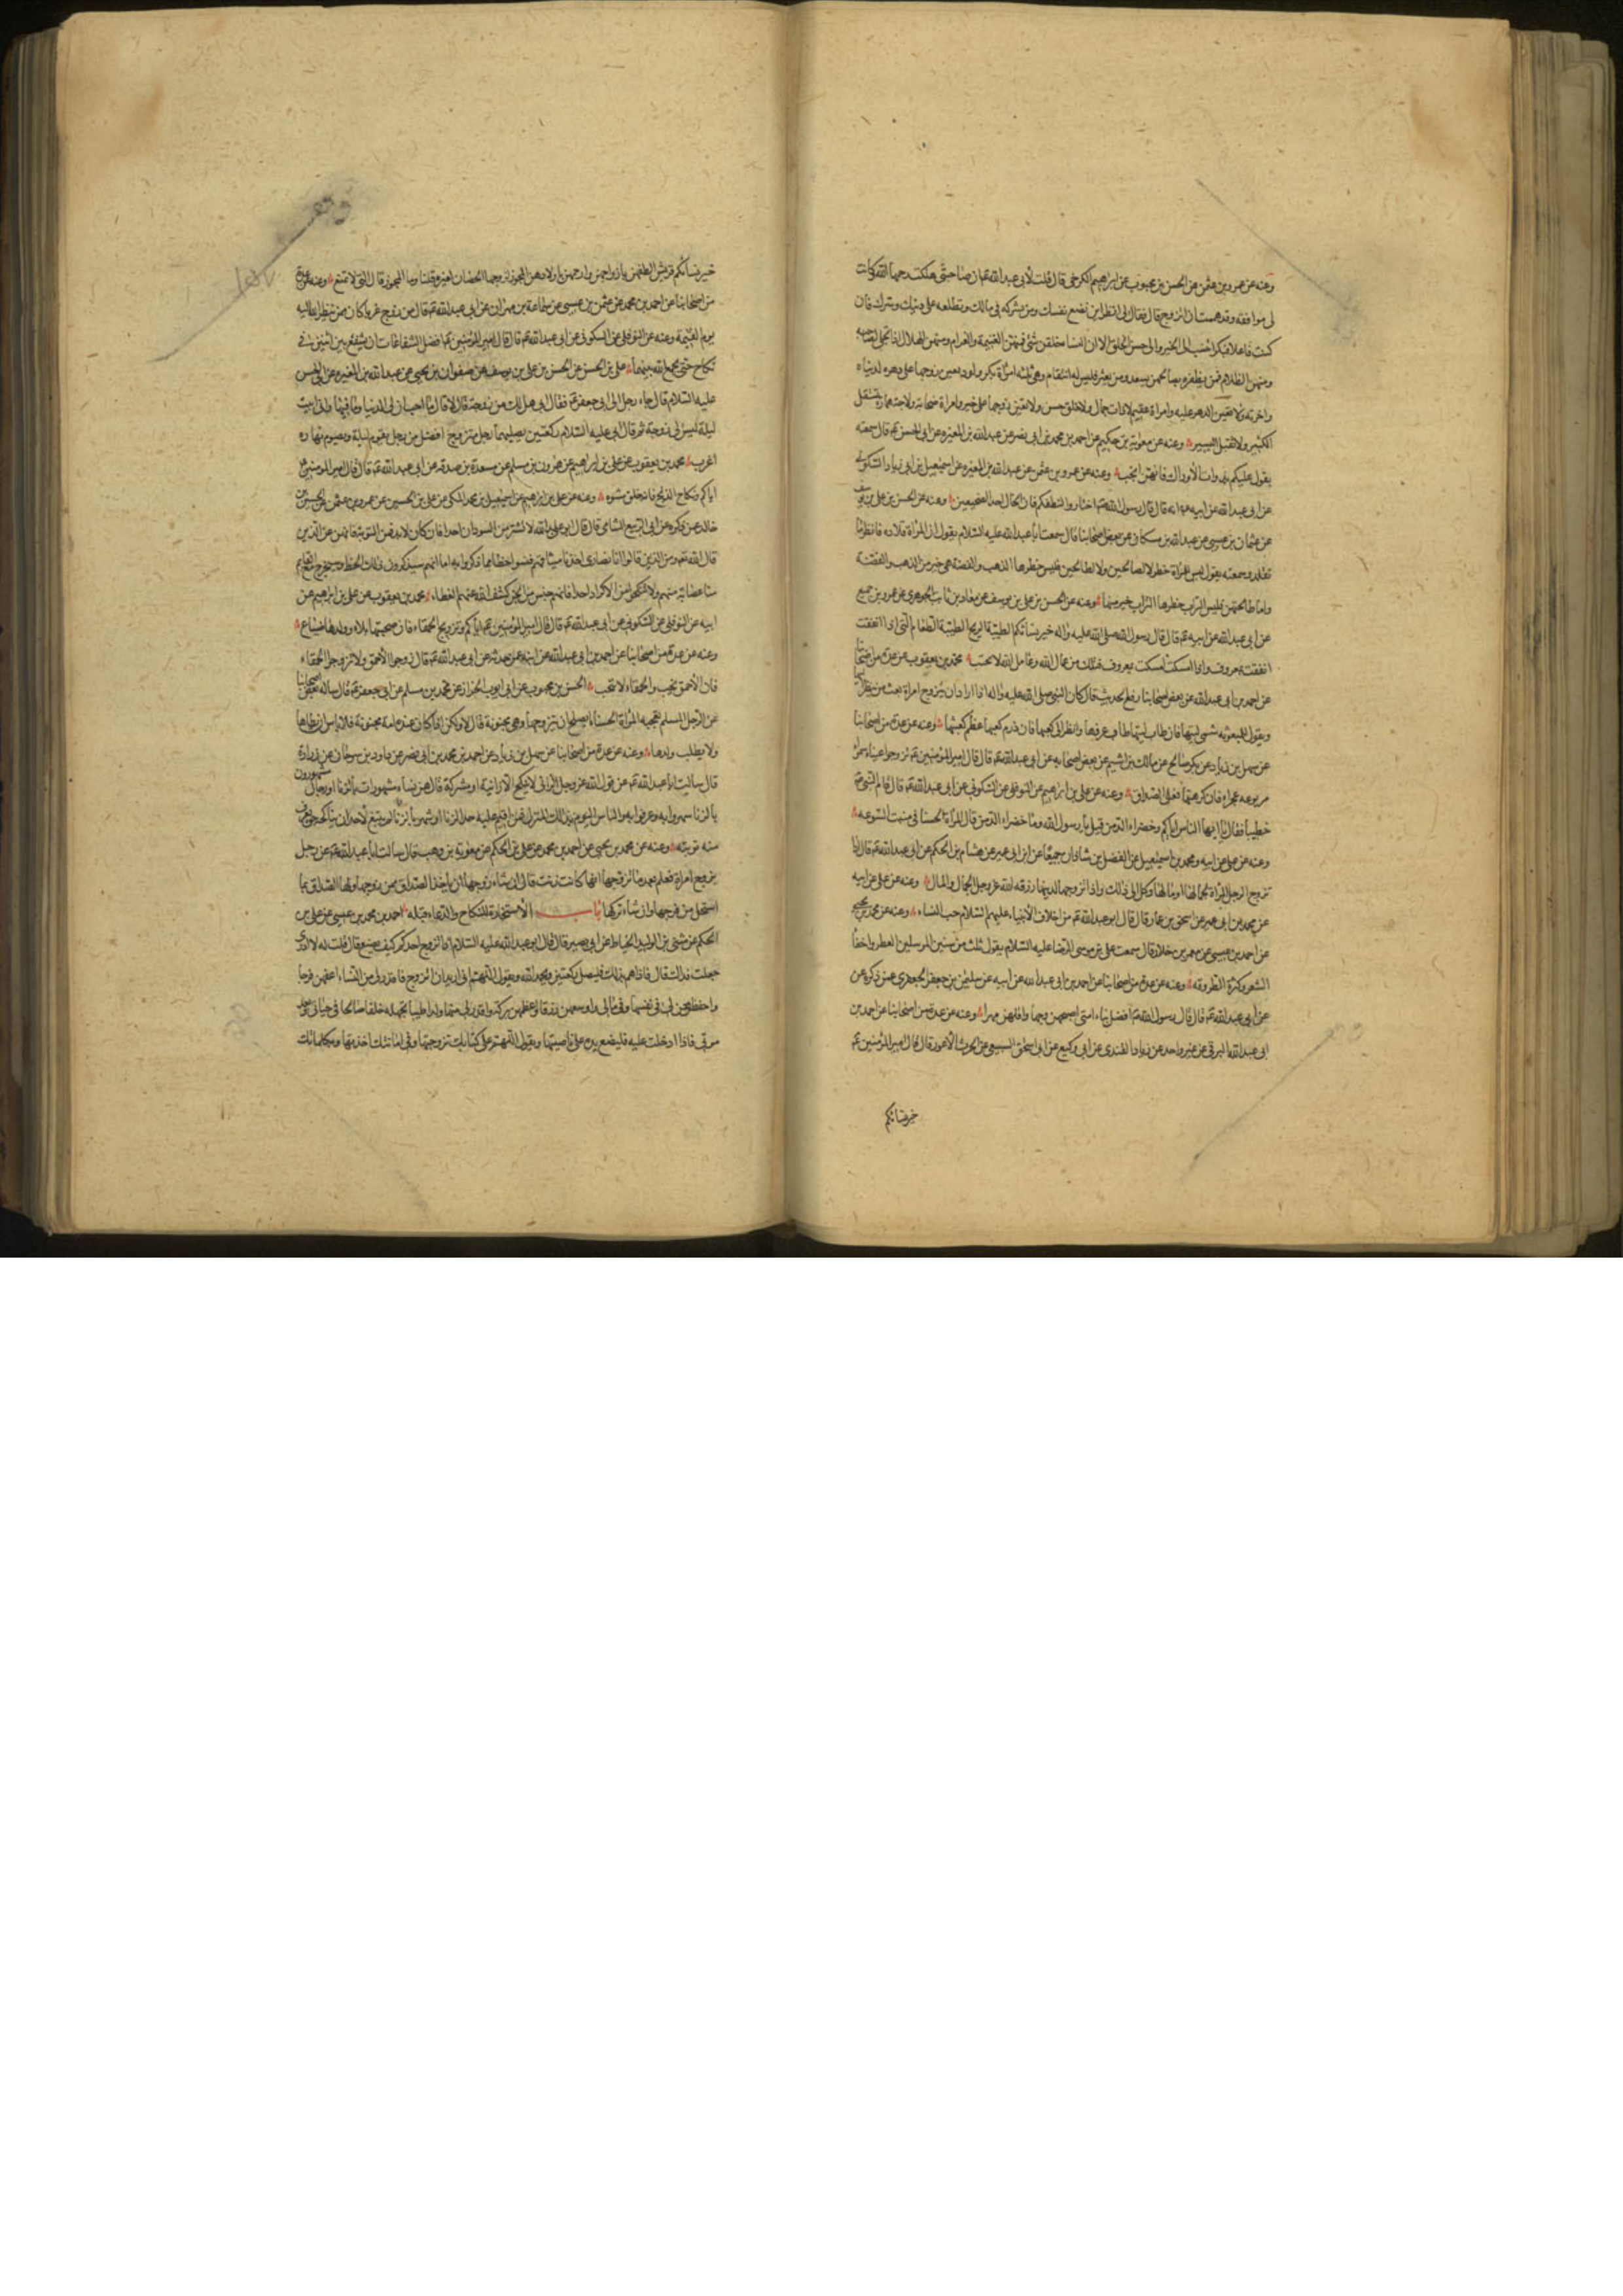 وعنه عن عمرو بن عثمن عن الحسن بن محبوب عن ابراهيم الكرخي قال قلت لأبي عبد الله ع ان صاحبتي هلكت رحمها الله وكانت
لي موافقة وقد هممت ان اتزوج قال فقال لي انظر اين تضع نفسك ومن تشركه في مالك وتطلعه على دينك وسرك فان
كنت فاعلا فبكرا تنسب الى الخير والى حسن الخلق الا ان النسا خلقن شتى فمنهن الغنيمة والغرام ومنهن الهلال اذا تجلى لصاحبه
ومنهن الظلام فمن يظفر بصالحهن يسعد ومن يعثر فليس له انتقام وهن ثلثه امرأة بكر ولود تعين زوجها على دهره لدنياه
واخرته ولا تعين الدهر عليه وامراة عقيم لا ذات جمال ولا خلق حسن ولا تعين زوجها على خير وامراة صخابة ولاجة همازة تستقل
الكثير ولا تقبل اليسير وعنه عن معوية بن حكيم عن احمد بن محمد بن ابي نصر عن عبد الله بن المغيره عن ابي الحسن ع قال سمعته
يقول عليكم بذوات الأوراك فانهن انجب وعنه عن عمرو بن عثمن عن عبد الله بن المغيره عن اسمعيل بن ابي زياد السكوني
عن ابي عبد الله عن ابيه ع انه قال قال رسول الله ص اختاروا لنطفكم فان الخال احد الضجيعين وعنه عن الحسن بن علي بن يوسف
عن عثمان بن عيسى عن عبد الله بن مسكان عن بعض اصحابنا قال سمعت أبا عبد الله عليه السلام يقول ان المرأة قلادة فانظر ما
تقلد وسمعته يقول ليس للمرأة خطر لا لصالحتهن ولا لطالحتهن فليس خطرها الذهب والفضة هي خير من الذهب والفضة
واما طالحتهن فليس التراب خطرها التراب خير منها وعنه عن الحسن بن علي بن يوسف عن معاذ بن ثابت الجوهري عن عمرو بن جميع
عن ابي عبد الله عن ابيه ع قال قال رسول الله صلى الله عليه واله خير نسائكم الطيبة الريح الطيبة الطعام التي اذا انفقت
انفقت بمعروف واذا امسكت امسكت بمعروف فتلك من عمال الله وعامل الله لا يخيب محمد بن يعقوب عن عدة من اصحابنا
عن احمد بن ابي عبد الله عن بعض اصحابنا رفع الحديث قال كان النبي صلى الله عليه واله اذا اراد ان يتزوج امرأة بعث من ينظر اليها
ويقول للمبعوثة شمي ليتها فان طاب ليتها طاب عرفها وانظري كعبها فان درم كعبها عظم كعثبها وعنه عن عدة من اصحابنا
عن سهل بن زياد عن بكر بن صالح عن مالك بن اشيم عن بعض اصحابه عن ابي عبد الله ع قال قال امير المؤمنين ع تزوجوا عيناء سمراء
مربوعة عجزاء فان كرهتها فعلي الصداق وعنه عن علي بن ابراهيم عن النوفلي عن السكوني عن ابي عبد الله ع قال قام النبي ص
خطيبا فقال ايها الناس اياكم وخضراء الدمن قيل يا رسول الله وما خضراء الدمن قال المرأة الحسنا في منبت السوء
وعنه عن علي عن ابيه ومحمد بن اسمعيل عن الفضل بن شاذان جميعا عن ابن ابي عمير عن هشام بن الحكم عن ابي عبد الله ع قال اذا
تزوج الرجل المرأة لجمالها او مالها وكل الى ذلك واذا تزوجها لدينها رزقه الله عز وجل الجمال والمال وعنه عن علي عن ابيه
عن محمد بن ابي عمير عن اسحق بن عمار قال قال ابو عبد الله ع من اخلاق الأنبياء عليهم السلام حب النساء وعنه عن محمد بن يحيى
عن احمد بن عيسى عن معمر بن خلاد قال سمعت علي بن موسى الرضا عليه السلام يقول ثلث من سنن المرسلين العطر واخفاء
الشعر وكثرة الطروقة وعنه عن عدة من اصحابنا عن احمد بن ابي عبد الله عن ابيه عن سليمن بن جعفر الجعفري عمن ذكره عن
عن ابي عبد الله ع قال قال رسول الله ص افضل نساء امتي اصبحهن وجها واقلهن مهرا وعنه عن عدة من اصحابنا عن احمد بن
ابي عبد الله البرقي عن غير واحد عن زياد القندي عن ابي وكيع عن ابي اسحق السبيعي عن الحرث الأعور قال قال امير المؤمنين ع
خير نسائكم
وقف
خير نسائكم قريش الطفهن بازواجهن وارحمهن باولادهن المجون لزوجها الحصان لغيره قلنا وما المجون قال التي لا تمنع وعنه عن عدة
من اصحابنا عن احمد بن محمد عن عثمن بن عيسى عن سماعة بن مهران عن ابي عبد الله ع قال من زوج عزبا كان ممن ينظر الله اليه
يوم القيمة وعنه عن النوفلي عن السكوني عن ابي عبد الله ع قال قال امير المؤمنين ع افضل الشفاعات ان يشفع بين اثنين في
نكاح حتى يجمع الله بينهما علي بن الحسن عن الحسن بن علي بن يوسف عن صفوان بن يحيى عن عبد الله بن المغيره عن ابي الحسن
عليه السلام قال جاء رجل الى ابي جعفر ع فقال ابي هل لك من زوجة قال لا قال ما احب ان لي الدنيا وما فيها واني ابيت
ليلة ليس لي زوجة ثم قال ابي عليه السلام ركعتين يصليهما رجل متزوج افضل من رجل يقوم ليلة ويصوم نهاره
اعزب محمد بن يعقوب عن علي بن ابراهيم عن هرون بن مسلم عن مسعدة بن صدقة عن ابي عبد الله ع قال قال امير المومنين ع
اياكم ونكاح الزنج فانه خلق مشوه وعنه عن علي بن ابراهيم عن اسمعيل بن محمد المكي عن علي بن الحسين عن عمرو بن عثمن عن الحسين بن
خالد عمن ذكره عن ابي الربيع الشامي قال قال ابو عبد الله لا تشتر من السودان احدا فان كان لا بد فمن النوبة فانهم من الذين
قال الله ع ومن الذين قالوا انا نصارى اخذنا ميثاقهم فنسوا حظا مما ذكروا به اما انهم سيذكرون ذلك الحظ وسيخرج مع القايم
منا عصابة منهم ولا تنكحوا من الاكراد احدا فانهم جنس من الجن كشف الله عنهم الغطاء محمد بن يعقوب عن علي بن ابراهيم عن
ابيه عن النوفلي عن السكوني عن ابي عبد الله ع قال قال امير المؤمنين ع اياكم وتزويج الحمقاء فان صحبتها بلاء وولدها ضياع
وعنه عن عدة من اصحابنا عن احمد بن ابي عبد الله عن ابيه عمن حدثه عن ابي عبد الله ع قال زوجوا الأحمق ولا تزوجوا الحمقاء
فان الأحمق ينجب والحمقاء لا تنجب الحسن بن محبوب عن ابي ايوب الخزاز عن محمد بن مسلم عن ابي جعفر ع قال ساله بعض اصحابنا
عن الرجل المسلم تعجبه المرأة الحسناء ايصلح ان يتزوجها وهي مجنونة قال لا ولكن اذا كان عنده امة مجنونة فلا باس ان يطأها
ولا يطلب ولدها وعنه عن عدة من اصحابنا عن سهل بن زياد عن احمد بن محمد بن ابي نصر عن داود بن سرحان عن زرارة
قال سالت ابا عبد الله ع عن قول الله عز وجل الزاني لا ينكح الا زانية او مشركة قال هن نساء مشهورات بالزنا ورجال مشهورون
بالزنا شهروا به وعرفوا به والناس اليوم بذلك المنزل فمن اقيم عليه حد الزنا او شهر بالزنا لم ينبغ لأحد ان يناكحه حتى يعرف
منه توبته وعنه عن محمد بن يحيى عن احمد بن محمد عن علي بن الحكم عن معوية بن وهب قال سالت ابا عبد الله ع عن رجل
يزوج امراة فعلم بعد ما تزوجها انها كانت زنت قال ان شاء زوجها ان يأخذ الصداق ممن زوجها ولها الصداق بما
استحل من فرجها وان شاء تركها باب الأستخارة للنكاح والدعاء قبله احمد بن محمد بن عيسى عن علي بن
الحكم عن مثنى بن الوليد الحناط عن ابي بصير قال قال ابو عبد الله عليه السلام اذا تزوج احدكم كيف يصنع قال قلت له لا ادري
جعلت فداك قال فاذا هم بذلك فليصل ركعتين ويحمد الله ويقول اللهم اني اريد ان اتزوج فاقدر لي من النساء اعفهن فرجا
واحفظهن لي في نفسها وفي مالي واوسعهن رزقا واعظمهن بركة واقدر لي منها ولدا طيبا تجعله خلفا صالحا في حياتي وبعد
موتي فاذا ادخلت عليه فليضع يده على ناصيتها ويقول اللهم على كتابك تزوجتها وفي امانتك اخذتها وبكلماتك